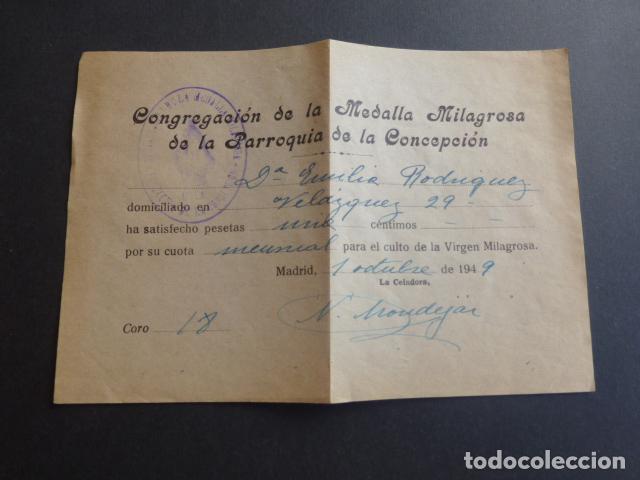 Congregación de la Medalla Milagrosa
de la Parroquia de la Concepción
Dª Emilia Rodriguez
domiciliado en Velázquez 29-
ha satisfecho pesetas una céntimos - -
por su cuota mensual para el culto de la Virgen Milagrosa.
Madrid, 1 octubre de 1949
La Celadora,
Coro 18 N. Mondejar
todocoleccion